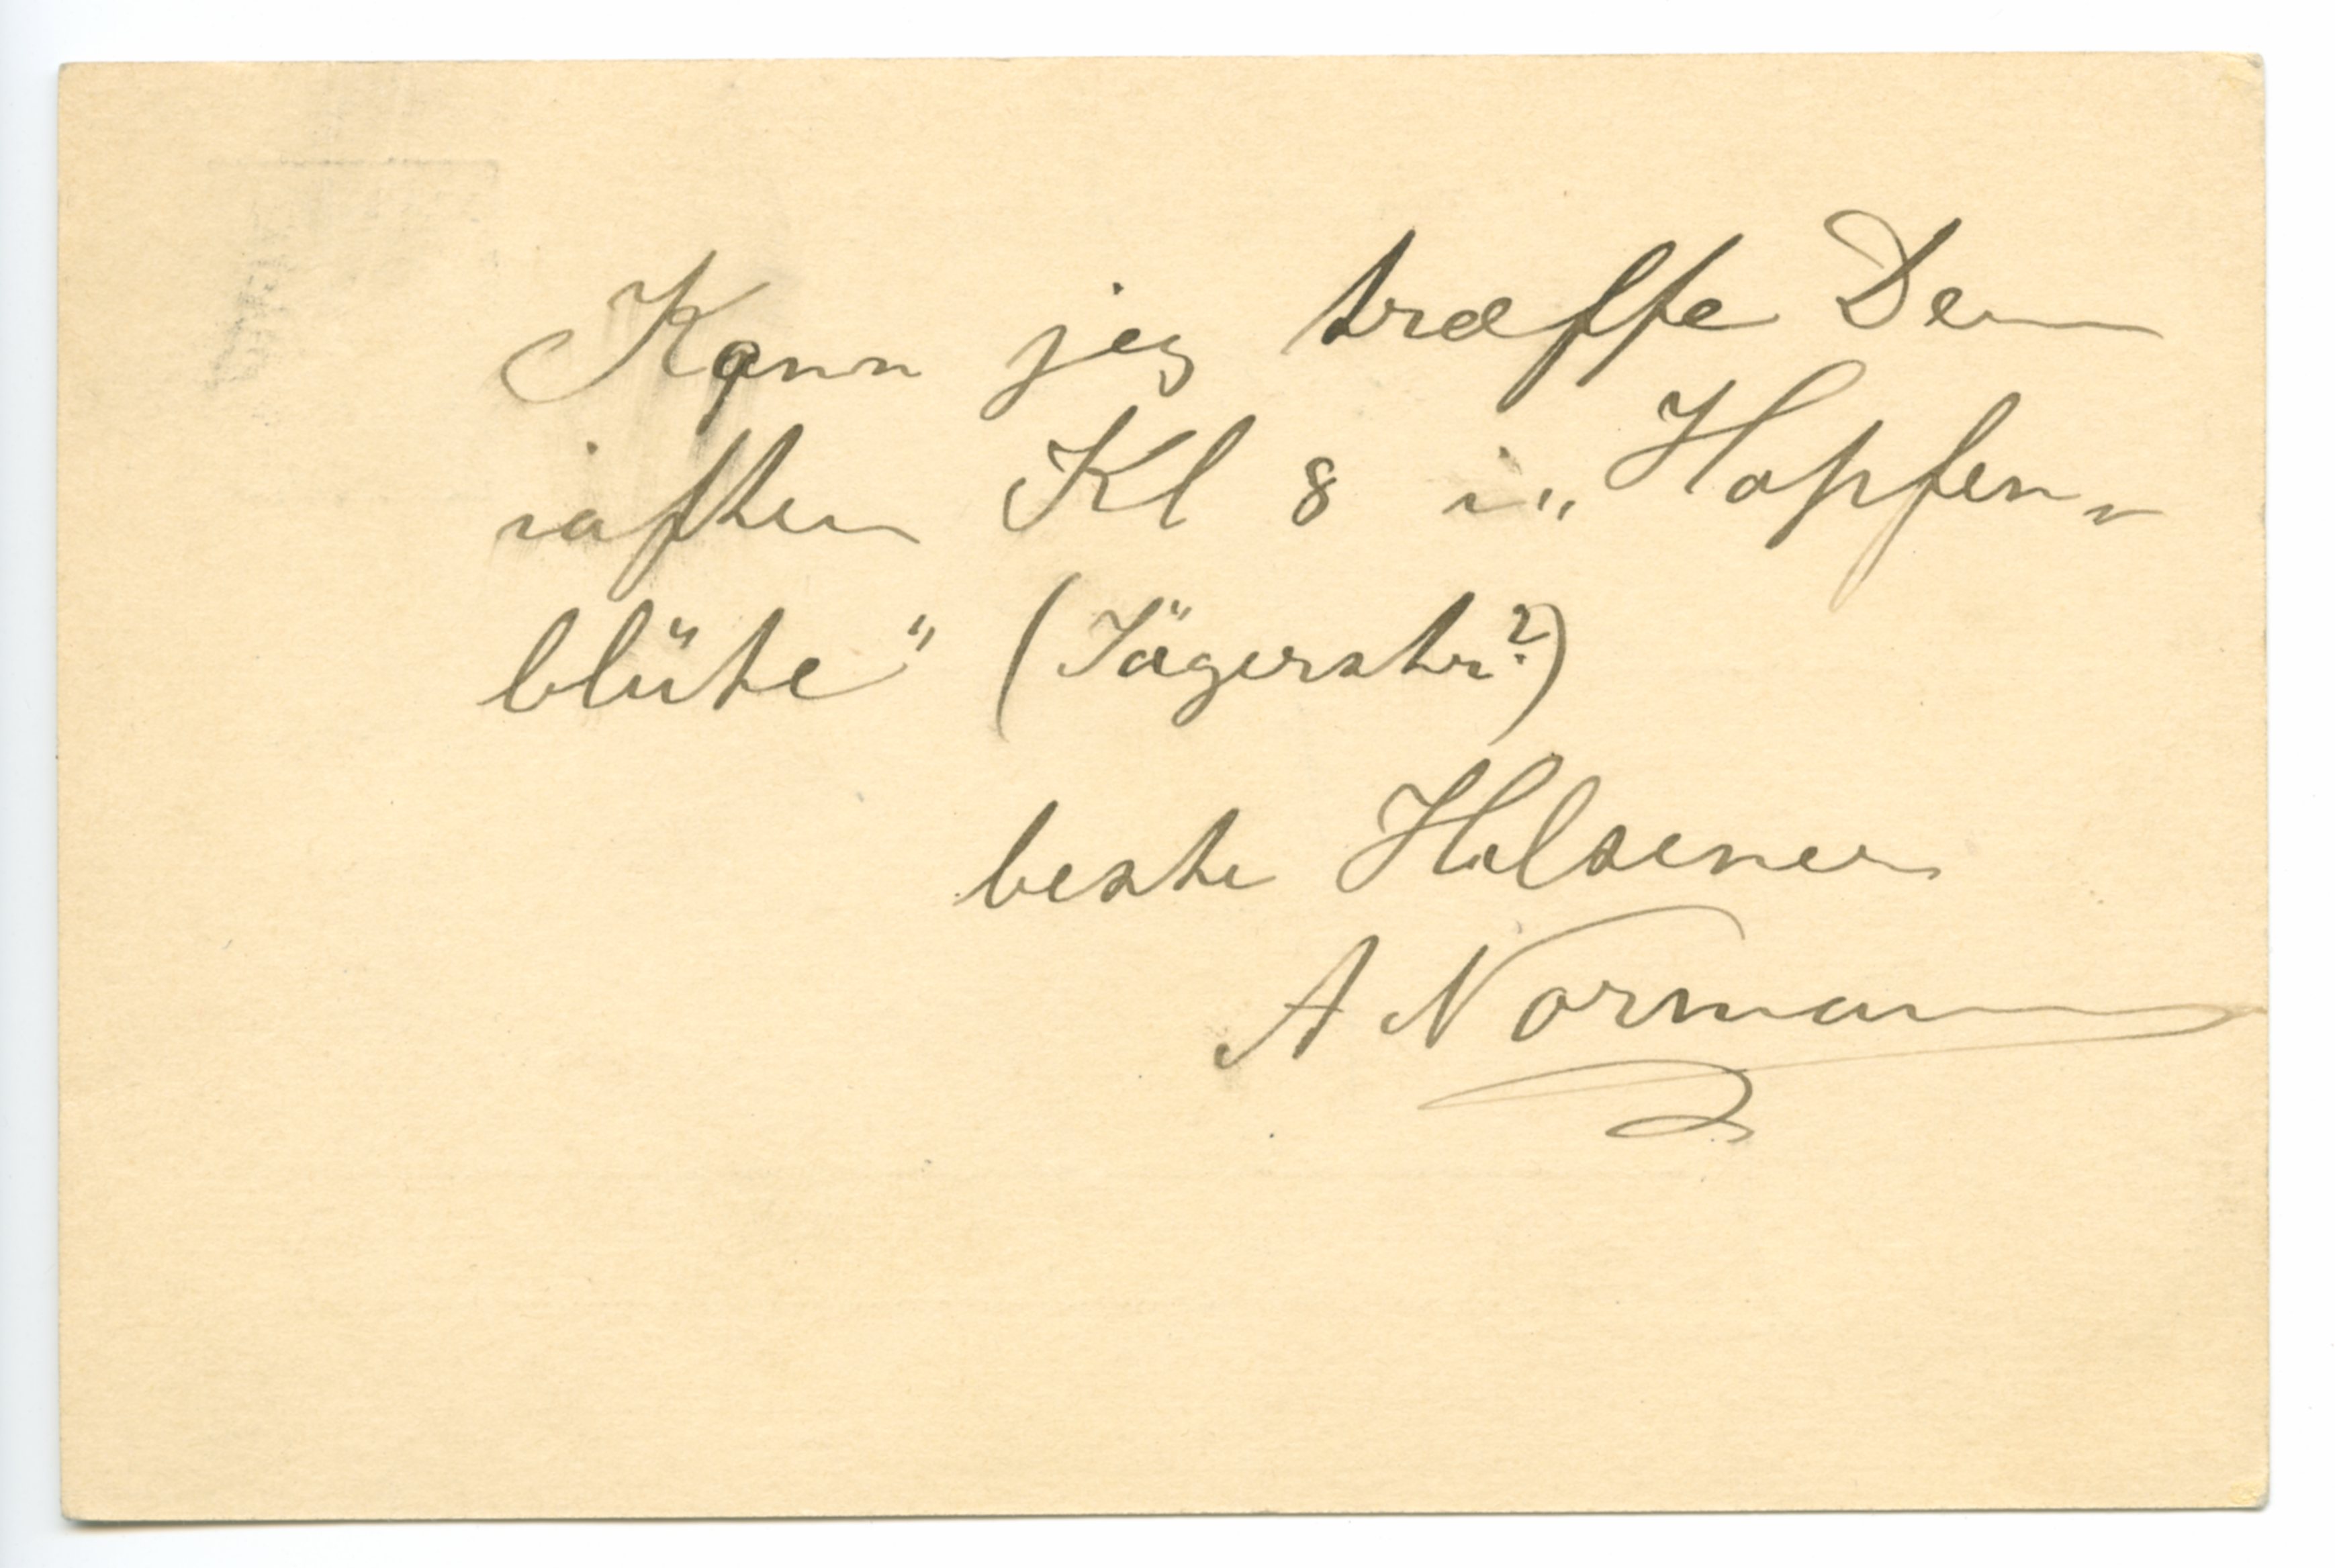 Kann jeg træffe Dem
iaften Kl 8 i „Hopfen-
blüthe" (Jägerstr?)
beste Hilsener
A Normann